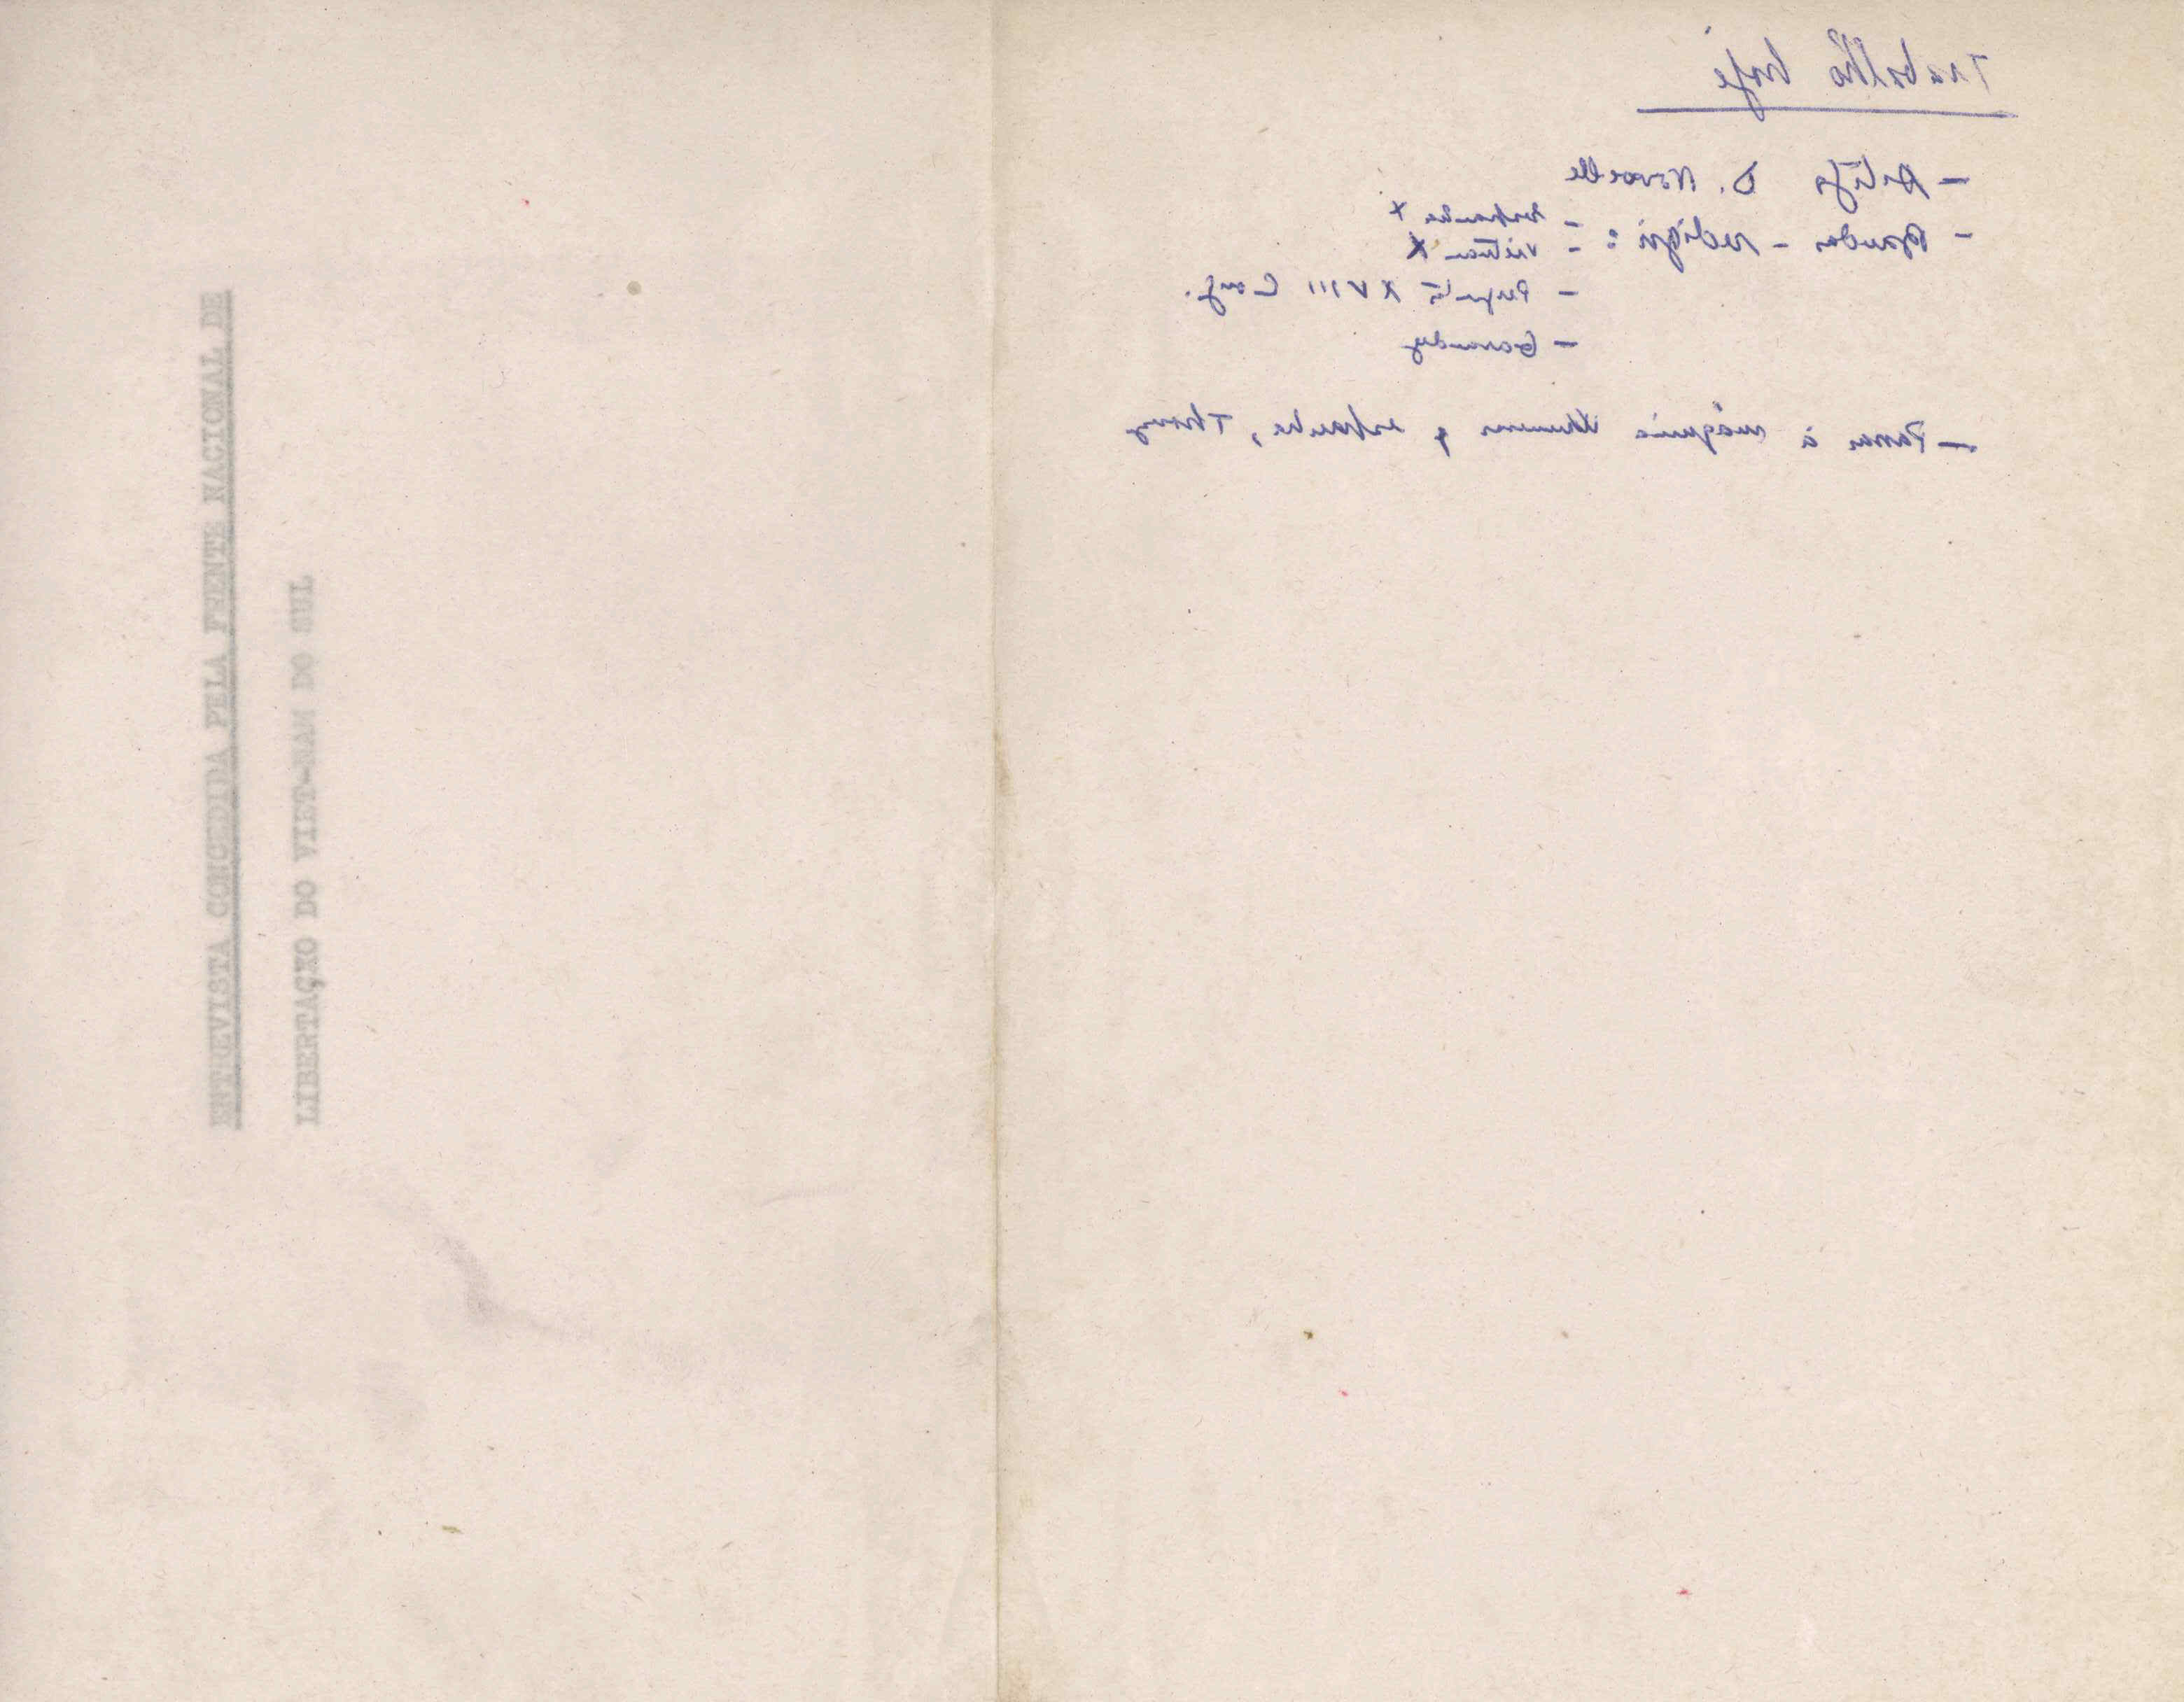 ENTREVISTA CONCEDIDA PELA FRENTE NACIONAL DE
LIBERTAÇÃO DO VIET-NAM DO SUL
Trabalho hoje
- Artigo D. Nouvelle
- redigir :
- Vietnam X
- XVIII Cong.
- Garaudy
- Passar à máquina